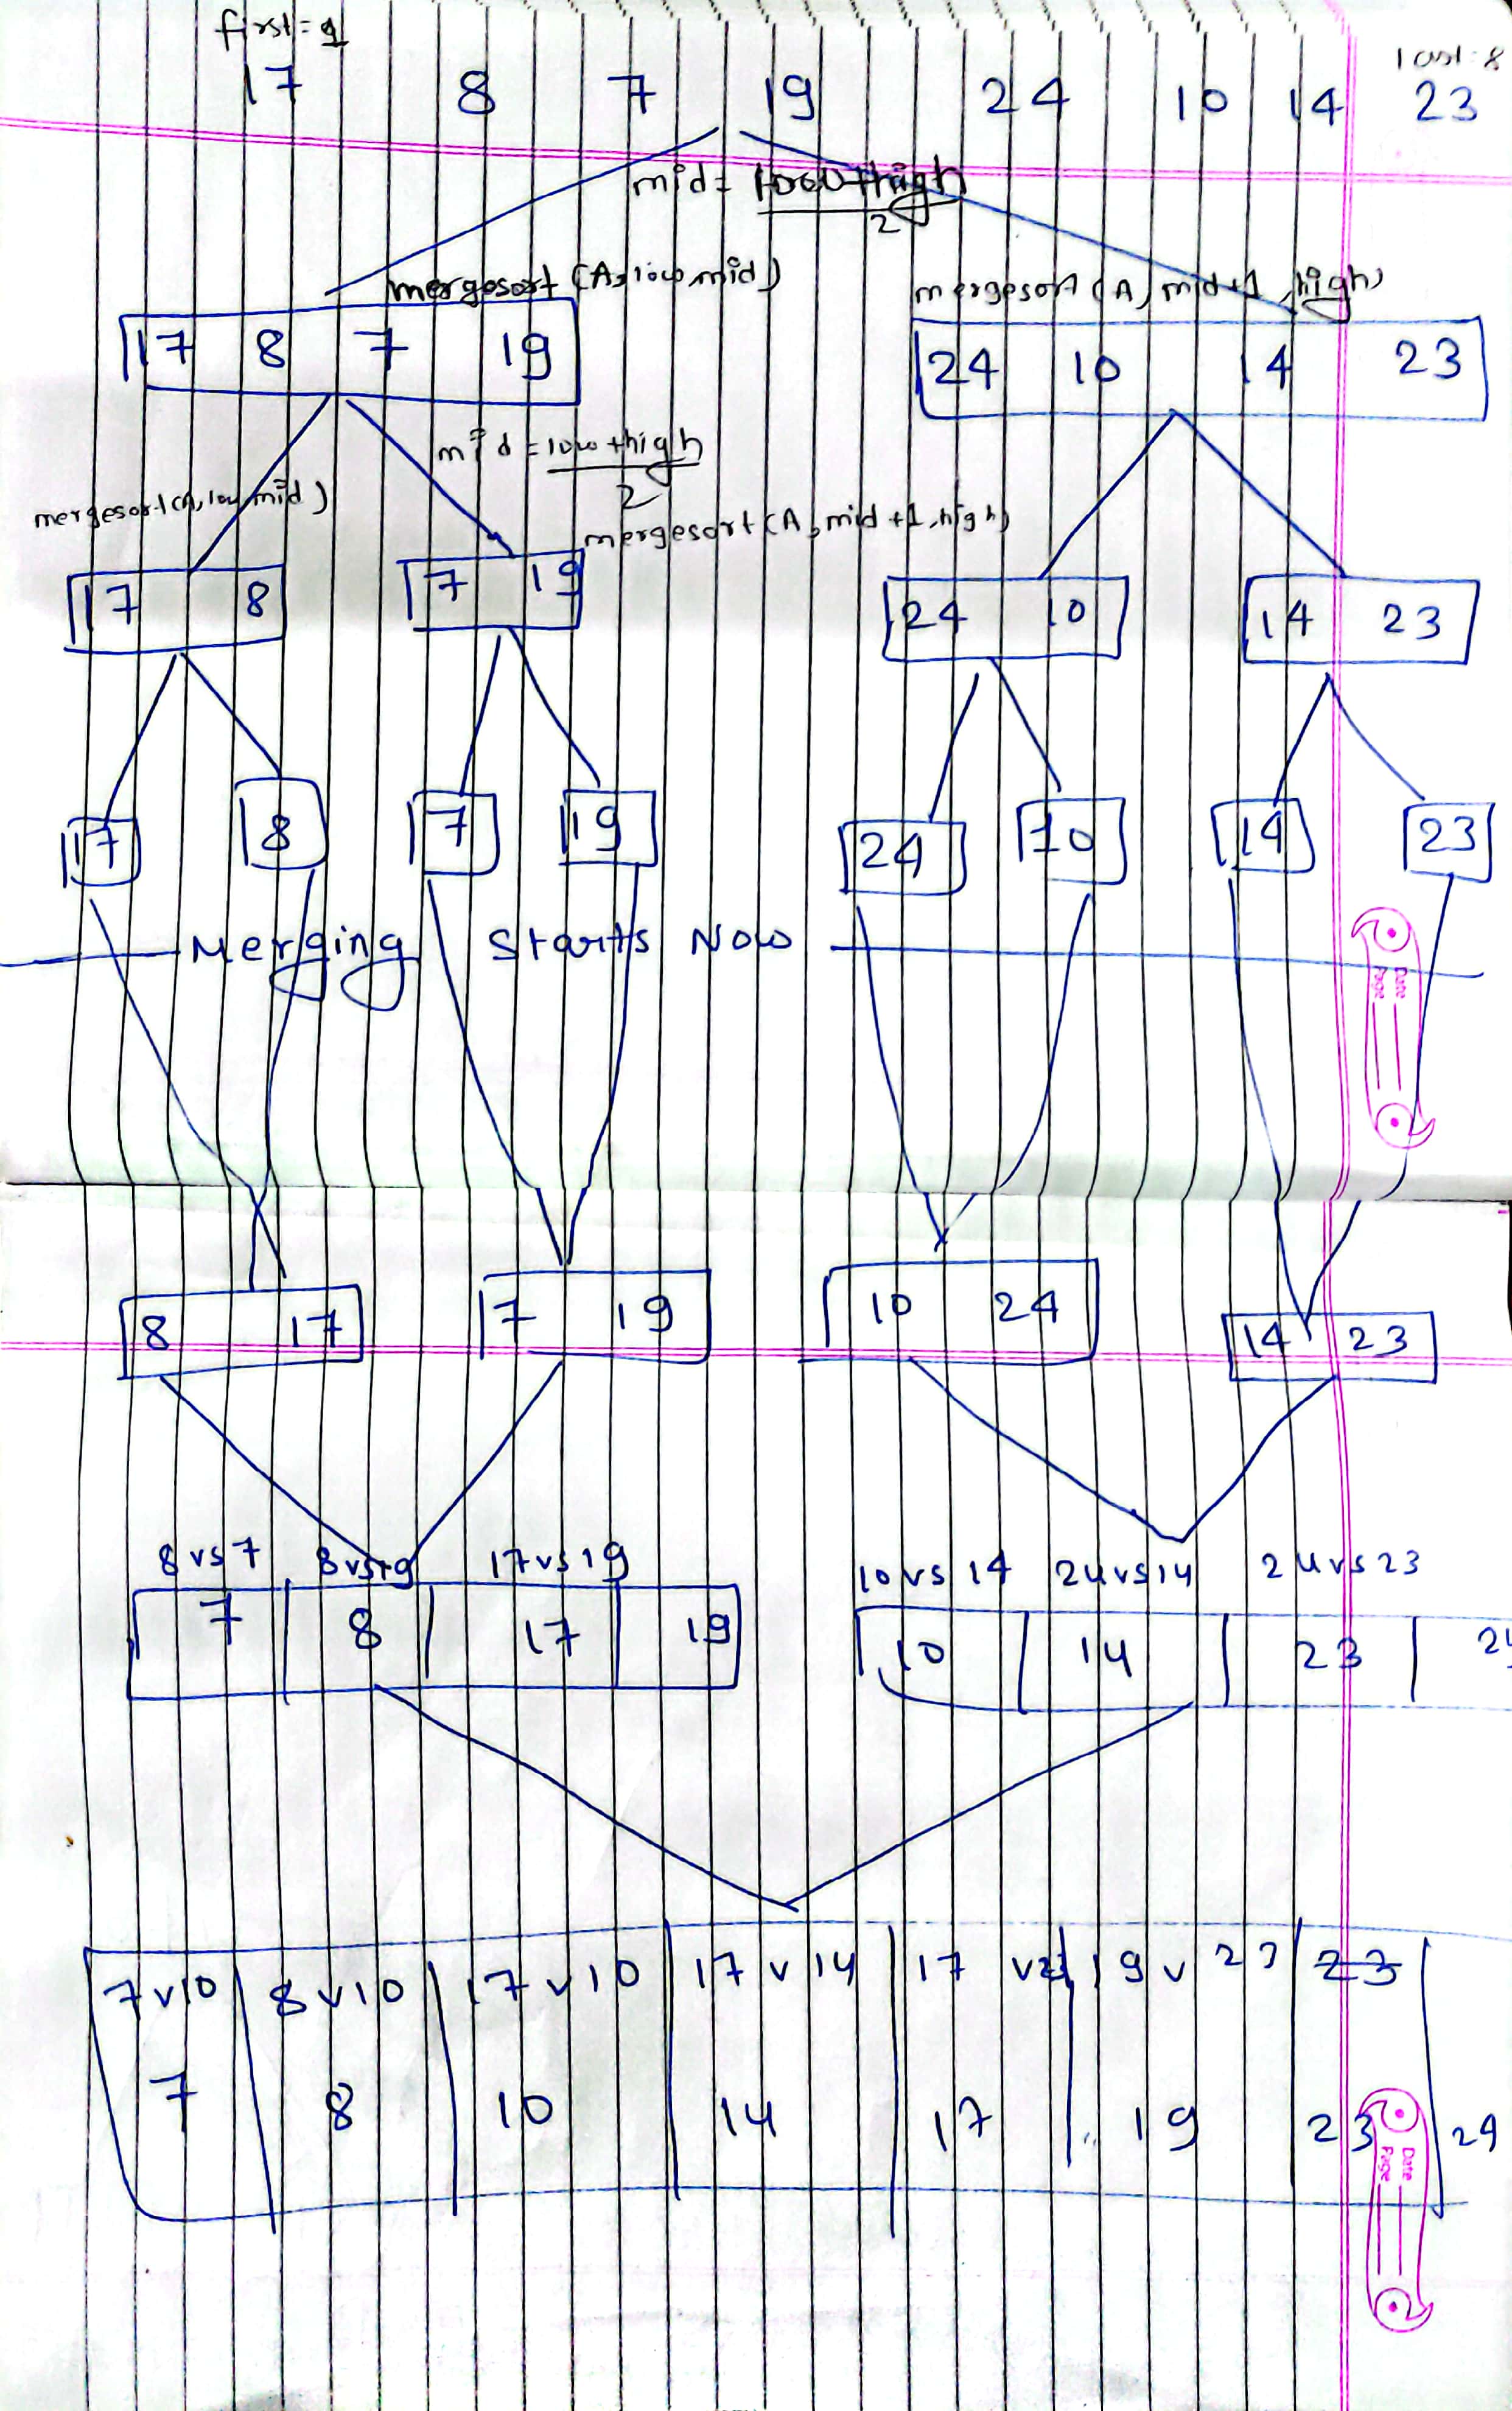 first = 1
last = 8
17 8 7 19 24 10 14 23
mid = low+high
2
mergesort (A, low, mid) mergesort (A, mid+1, high)
17 8 7 19 24 10 14 23
mid = low+high
2
mergesort (A, low, mid) mergesort (A, mid+1, high)
17 8 7 19 24 10 14 23
17 8 7 19 24 10 14 23
Merging Starts Now
Date
Page
8 17 7 19 10 24 14 23
8 vs 7 8 vs 19 17 vs 19 10 vs 14 24 vs 14 24 vs 23
7 8 17 19 10 14 23 24
7 v 10 8 v 10 17 v 10 17 v 14 17 v 23 19 v 23 23
7 8 10 14 17 19 23 24
Date
Page